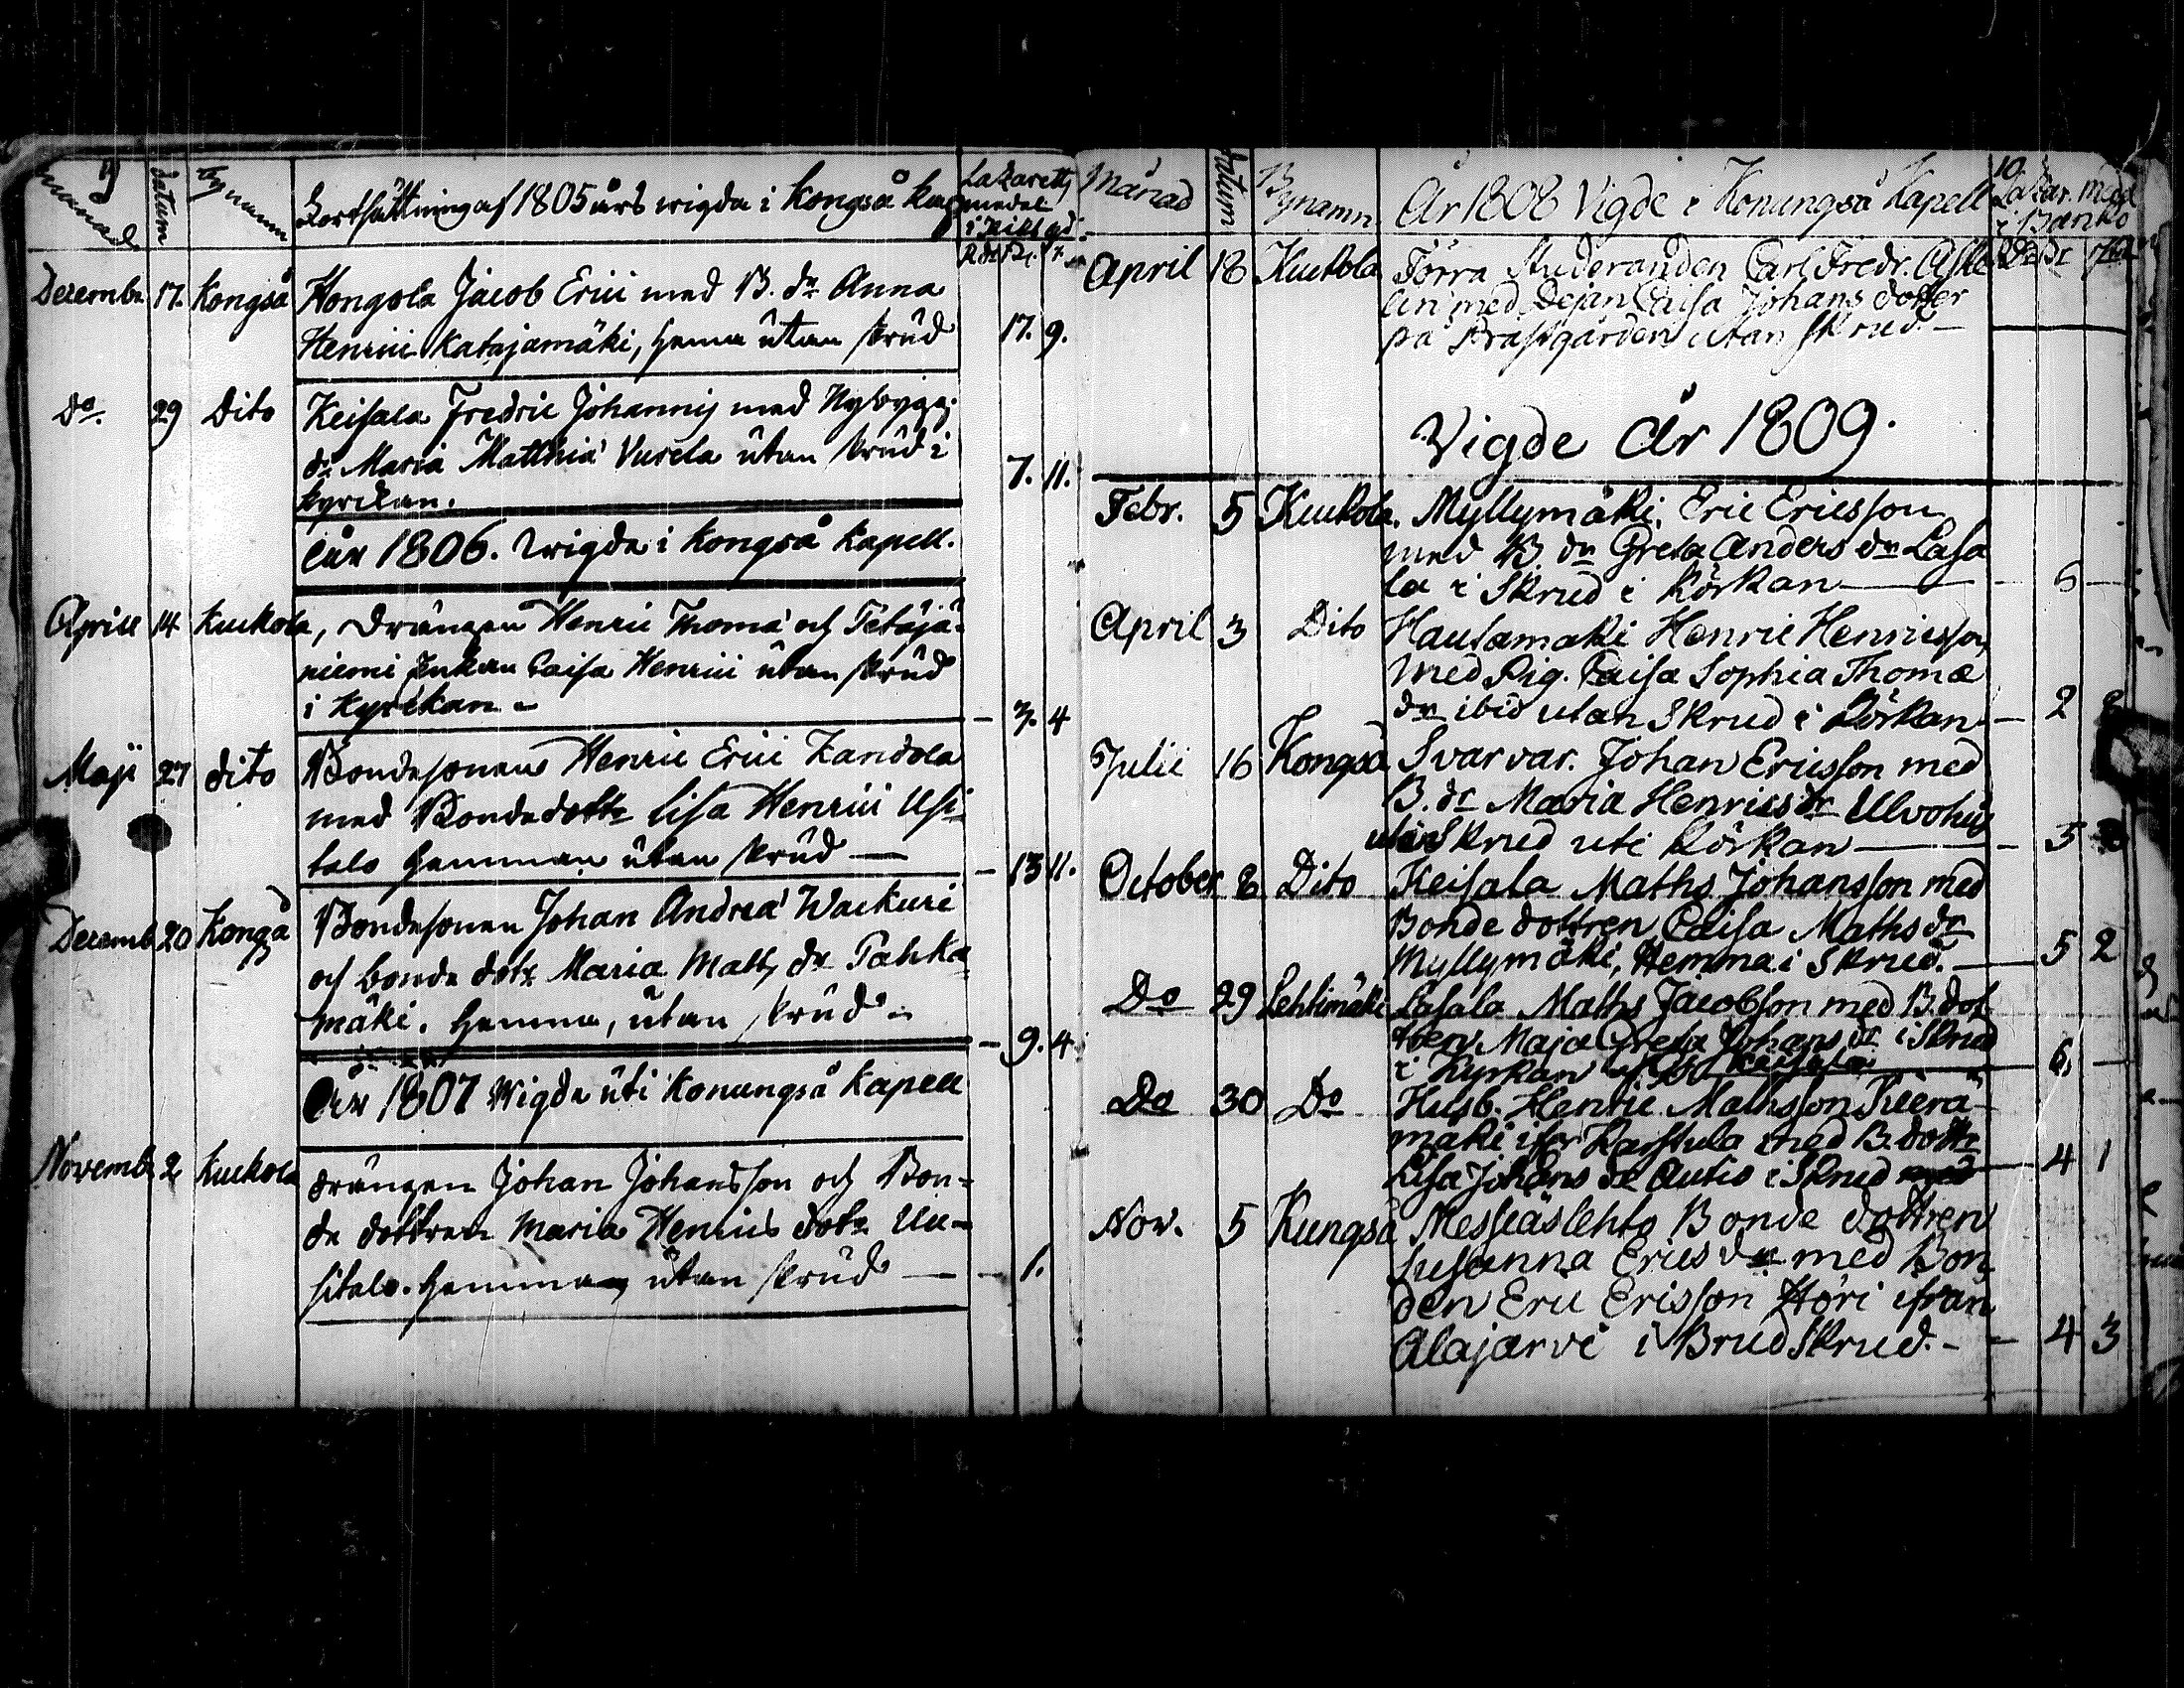 9
månad datum bynamn Fortsättning af 1805 års wigda i Kongså Kap Lazaretts
medel
i Rikl gd
Rdr
Decembr 17. Kongså Hongola Jacob Erici med B. dr Anna
Henrici Katajamäki, hema utan skrud 17. 9.
Do. 29 Dito Keisala Fredric Johannis med Nybygg.
dr Maria Matthiæ Vurela utan skrud i 7. 11.
kyrckan.
åhr 1806. Wigda i Kongså Kapell.
Aprill 14 Kuckola, Drängen Henric Thomæ och Tetäjä-
niemi Enkan Caisa Henrici utan skrud
i Kyrckan - 7. 4
Maji 27 dito Bondesonen Henric Erici Kandola
med Bondedottr Lisa Henrici Usi
talo hemman utan skrud — 13 11.
Decemb 20 Kongå Bondesonen Johan Andreæ Wackuri
och bonde dotr Maria Matts dr Pahka-
mäki. hemma, utan skrud - 9. 4
åhr 1807 Wigda uti Konungså Kapell
Novembr 2 Kuckola drängen Johan Johansson och Bon-
de dottren Maria Henrics dotr Uu-
sitalo. hemma utan skrud — 1.
10
Månad Datum Bynamn. År 1808 Vigde i Konungså Kapell Lazar. med
i Banko
April 18 Kuckola Förra Studeranden Carl Fredr.
lin med Dejan Caisa Johans dotter
på Prästgården utan skrud. —
Vigde År 1809.
Febr. 5 Kuckola. Myllymäki, Eric Ericsson
med B. dr Greta Anders dr Lasa
la i Skrud i Körkan — 6 —
April 3 Dito Hautamäki Henric Henricsson
med Pig. Caisa Sophia Thomæ
dr ibid utan Skrud i Körkan — 2
Julii 16 Kongså Svarvar. Johan Ericsson med
B. dr Maria Henrics dr Ulvohus
utan Skrud uti Körkan — 5
October 8 Dito Keisala Maths Johansson med
Bonde dottren Caisa Maths dr
Myllymäki, Hemma i Skrud. — 5 2
Do 29 Lehtimäki Lasala Maths Jacobsson med B. dot
tren Maja Greta Johans dr i Skrud
i Kyrkan Keisala 6 —
Do 30 Do Husb. Henric Mathsson Kiverä-
mäki ifr Karstula med B. dottr
Lisa Johans dr Autio i Skrud 4 1
Nov. 5 Kungså Messiäslehto Bonde dottren
Susanna Erics dr med Bon
den Eric Ericsson Höri ifrån
Alajärvi i BrudSkrud. - 4 3